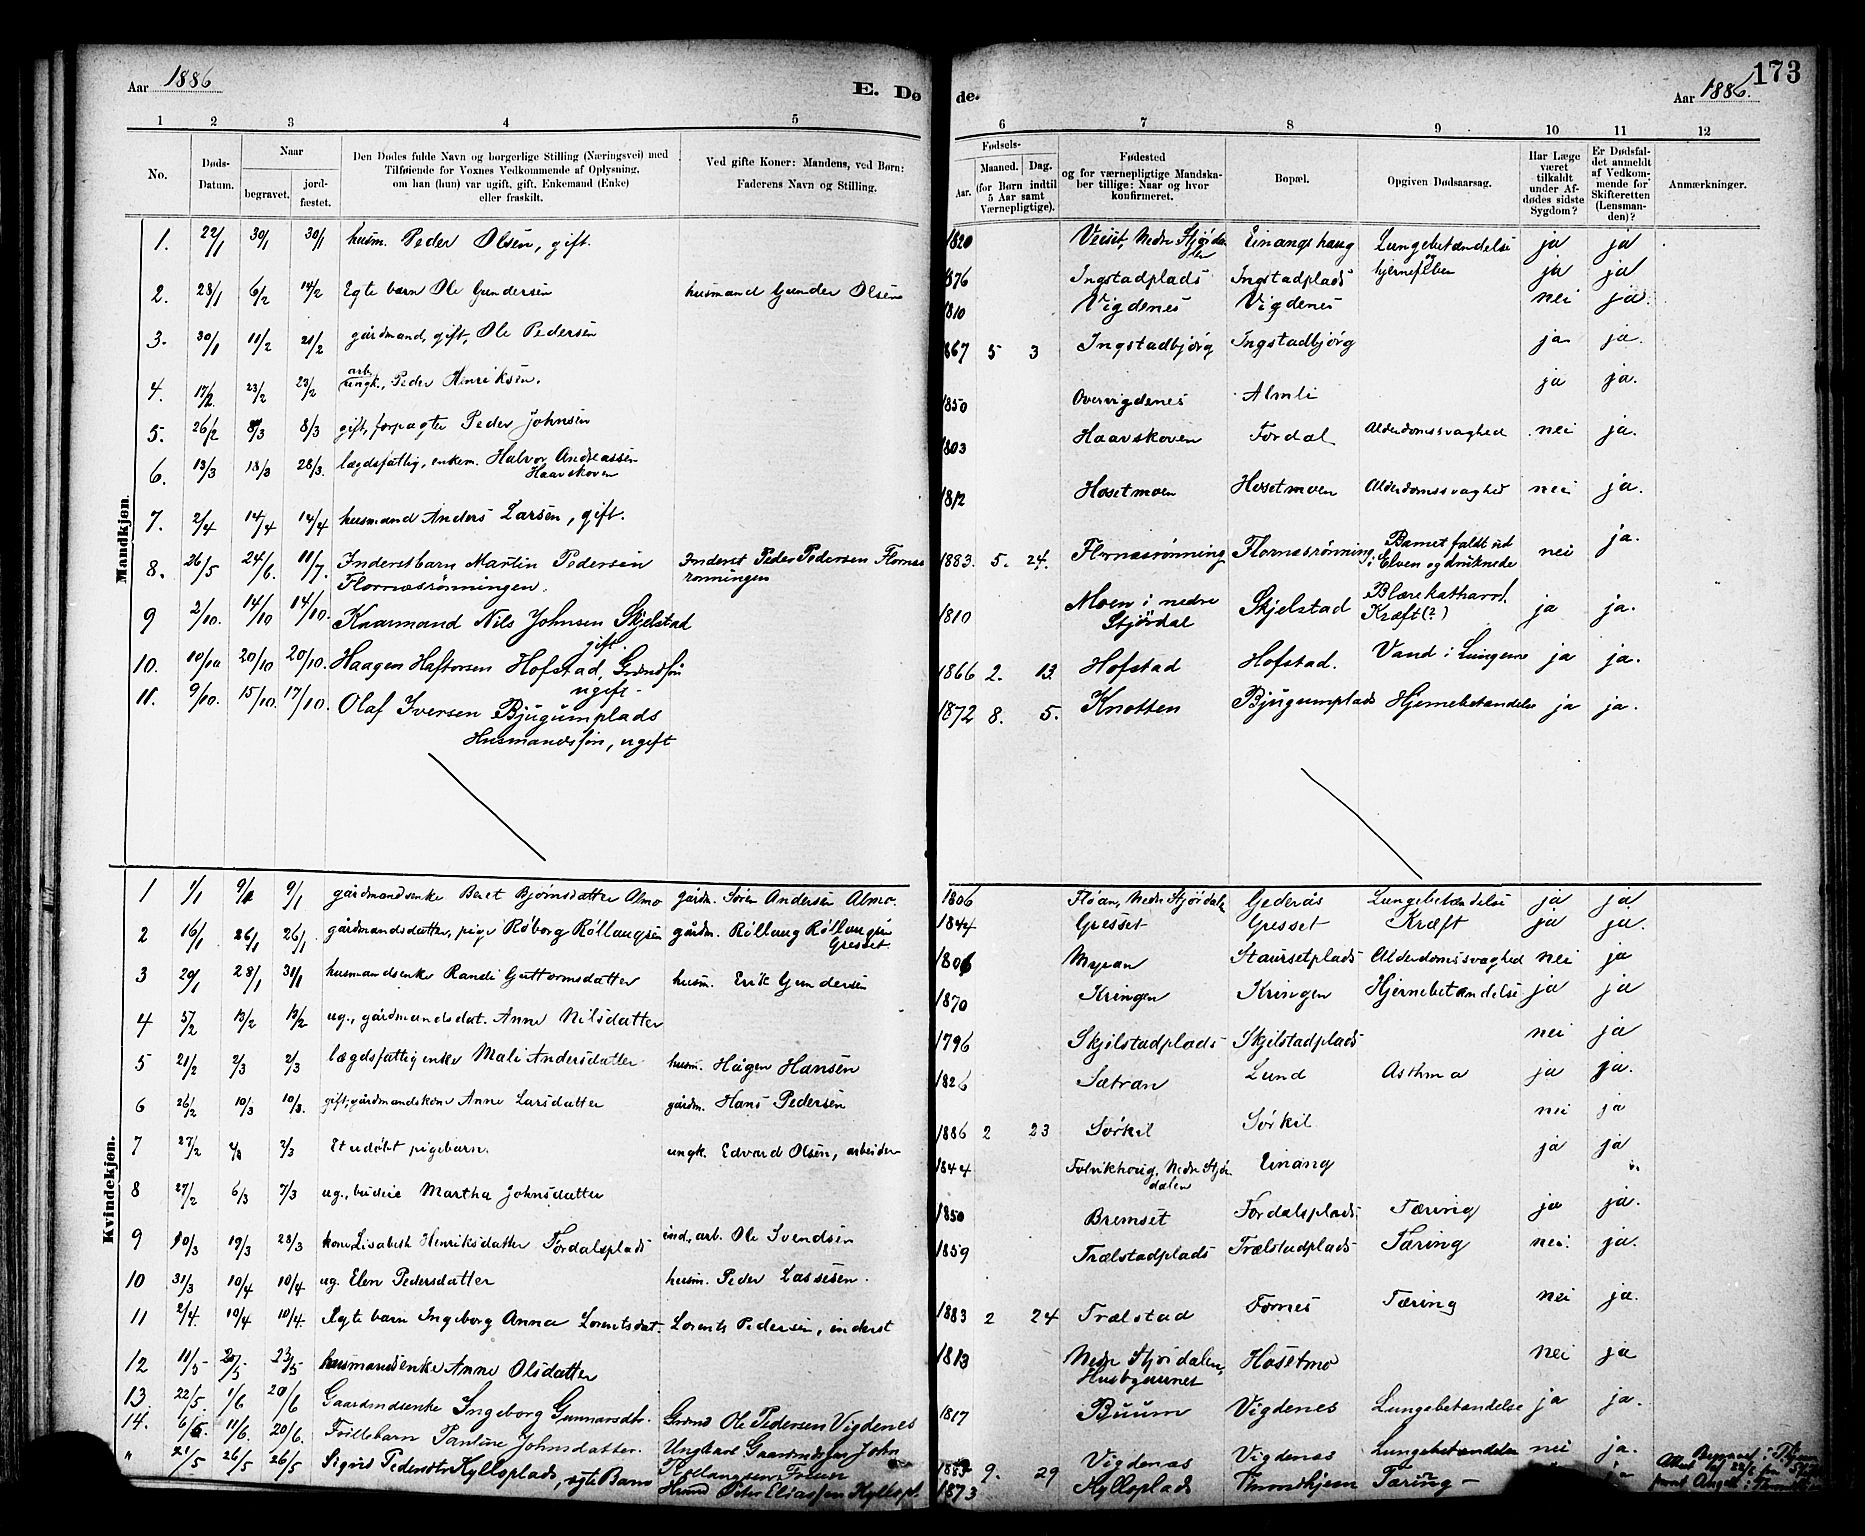 Aar 1886
E. Dø
1 2 3 4 5
No.
Døds-Datum.
Naar
begravet.
jord-fæstet.
Den Dødes fulde Navn og borgerlige Stilling (Næringsvei) med
Tilføiende for Voxnes Vedkommende af Oplysning,
om han (hun) var ugift, gift, Enkemand (Enke)
eller fraskilt.
Ved gifte Koner: Mandens, ved Børn:
Faderens Navn og Stilling.
Mandkjøn.
1. 22/1 30/1 30/1 husm. Peder Olsen, gift.
2. 23/1 6/2 14/2 Egte barn Ole Gundersen husmand Gunder Olsen
3. 30/1 11/2 21/2 gårdmand, gift, Ole Pedersen
4. 17/2 23/2 23/2 arb. ungk., Peder Henriksen.
5. 26/2 8/3 8/3 gift, forpagter Peder Johnsen
6. 13/3 18/3 28/3. lægdsfattig, enkem. Halvor Andreassen
Haavskoven
7. 2/4 14/4 14/4 husmand Anders Larsen, gift.
8. 26/5 24/6. 11/7. Inderstbarn Martin Pedersen Inderst Peder Pedersen Flornæs
Flornæsrønningen. rønningen
9 2/10. 14/10 14/10. Kaarmand Nils Johnsen Skjelstad
gift.
10. 10/10 20/10 20/10. Haagen Haftorsen Hofstad, Grændsøn
ugift-
11. 9/10. 15/10. 17/10. Olaf Iversen Bjugumplads
Husmandssøn, ugift
Kvindekjøn.
1 1/1 9/1 9/1 gårdmandsenke Beret Bjørnsdatter Almo gårdm. Sören Andersen Almo.
2 16/1 26/1 26/1 gårdmandsdatter, pige Råborg Röllaugsen gårdm. Röllaug Röllaugsen
Gresset
3 20/1 28/1 31/1 husmandsenke Randi Guttormsdatter husm. Erik Gundersen
4 5/2 13/2 13/2 ug., gårdmandsdat. Anne Nilsdatter
5 21/2 2/3 2/3 lægdsfattig enke Mali Andersdatter husm. Hågen Hansen
6 26/2 10/3 10/3. gift, gårdmandskone Anne Larsdatter gårdm. Hans Pedersen
7 27/2 2/3 2/3 Et udöbt pigebarn. ungk. Edvard Olsen, arbeider
8 27/2 6/3 7/3 ug., budeie Martha Johnsdatter
9 10/3 19/3 28/3 kone Lisabeth Henriksdatter Fordalsplads ind., arb. Ole Svendsen
10 31/3 10/4 10/4 ug. Elen Pedersdatter husm. Peder Lassesen.
11 2/4. 10/4 10/4. Egte barn Ingeborg Anna Lorentsdat. Lorents Pedersen, inderst
12 11/5 20/5 23/5 husmandsenke Anne Olsdatter
13. 22/5. 1/6 20/6 Gaardmdsenke Ingeborg Gunnarsdtr. Grmd Ole Pedersen Vigdenes
14. 6/6. 11/6. 20/6. Frillebarn Pauline Johnsdatter. Ungkarl Gaardmdssøn John
" 21/5 26/5 26/5 Sigrid Pedersdtr Kylloplads, ægte Barn
Husmd Peter Eliassen Kyllopl.
173
de.
Aar 1886.
6 7 8 9 10 11 12
Fødsels-
Aar.
Maaned. Dag.
(for Børn indtil
5 Aar samt
Værnepligtige).
Fødested
og for værnepligtige Mandska-
ber tillige: Naar og hvor
konfirmeret.
Bopæl.
Opgiven Dødsaarsag.
Har Læge
været
tilkaldt
under Af-
dødes sidste
Sygdom?
Er Dødsfal-
det anmeldt
af Vedkom-
mende for
Skifteretten
(Lensman-
den)?
Anmærkninger.
1820 Veiset, Nedre Stjørda len Einangshaug Lungebetændelse ja ja
1876 Ingstadplads Ingstadplads hjernefeber ja ja
1810 Vigdenes Vigdenes nei ja.
1867 5 3 Ingstadbjørg Ingstadbjørg ja ja.
1850 Overvigdenes Almli ja ja.
1803 Haavskoven Fordal Alderdomssvaghed nei ja.
1812 Hosetmoen Hosetmoen Alderdomssvaghed nei ja.
1883. 5. 24. Flornæsrønning Flornæsrønning Barnet faldt ud
i Elven og druknede nei ja.
1810 Moen i nedre
Stjørdal Skjelstad Blærekatharrh.
Kræft(?) ja ja.
1866 2. 13. Hofstad Hofstad. Vand i Lungerne ja ja.
1872 8. 5. Knotten Bjugumplads Hjernebetændelse ja ja.
1806 Flöan, Nedr. Stjördal Gederås Lungebetændelse ja ja
1844 Gresset Gresset Kræft ja ja.
1806 Myran Staursetplads Alderdomssvaghed nei ja
1870 Kringen Kringen Hjernebetændelse ja ja
1796 Skjelstadplads Skjelstadplads nei ja
1826 Sætran Lund Asthma ja ja.
1886 2 23 Sörkil Sörkil nei ja
1844 Folvikhoug, Nedr Stjör
dalen Einang ja ja
1850 Bremset Fordalsplads Tæring ja ja.
1859 Trælstadplads Trælstadplads Tæring nei. ja.
1883 2 24 Trælstad Fornes Tæring nei ja.
1813 Nedr Stjördalen,
Husbyaunet Hosetmo nei ja
1817 Buum Vigdenes Lungebetændelse ja ja.
1885 9. 29 Vigdenæs Vigdenæs Lungebetændelse nei ja.
1873 Kylloplads Throndhjem Tæring - ja